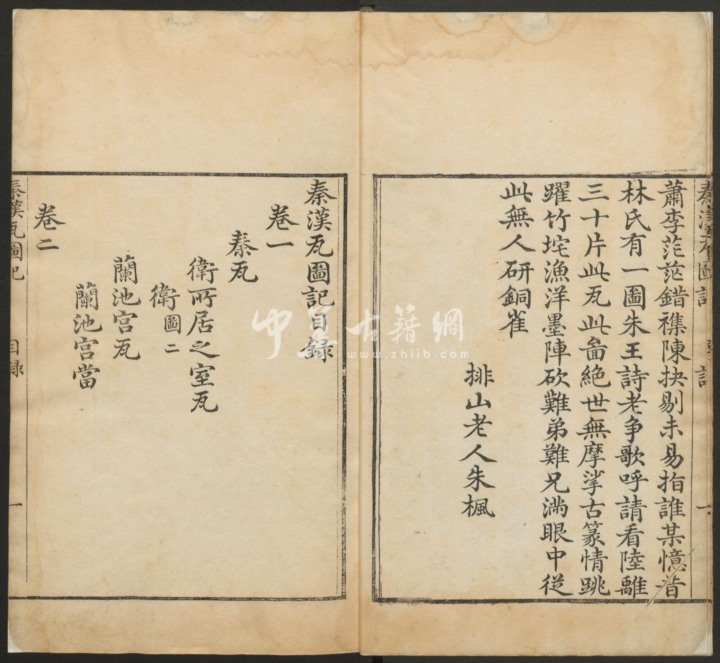 蕭李茫茫錯襍陳抉剔未易指誰某憶昔
林氏有一圖朱王詩老爭歌呼請看陸離
三十片此瓦此啚絶世無摩挲古篆情跳
躍竹垞漁洋墨陣砍難弟難兄滿眼中從
此無人研銅雀
排山老人朱楓
秦漢瓦圖記目録
卷一
秦瓦
衛所居之室瓦
衛圖二
蘭池宫瓦
蘭池宫當
卷二
秦漢瓦圖記 目録 一
中華古籍網
www.zhlib.com